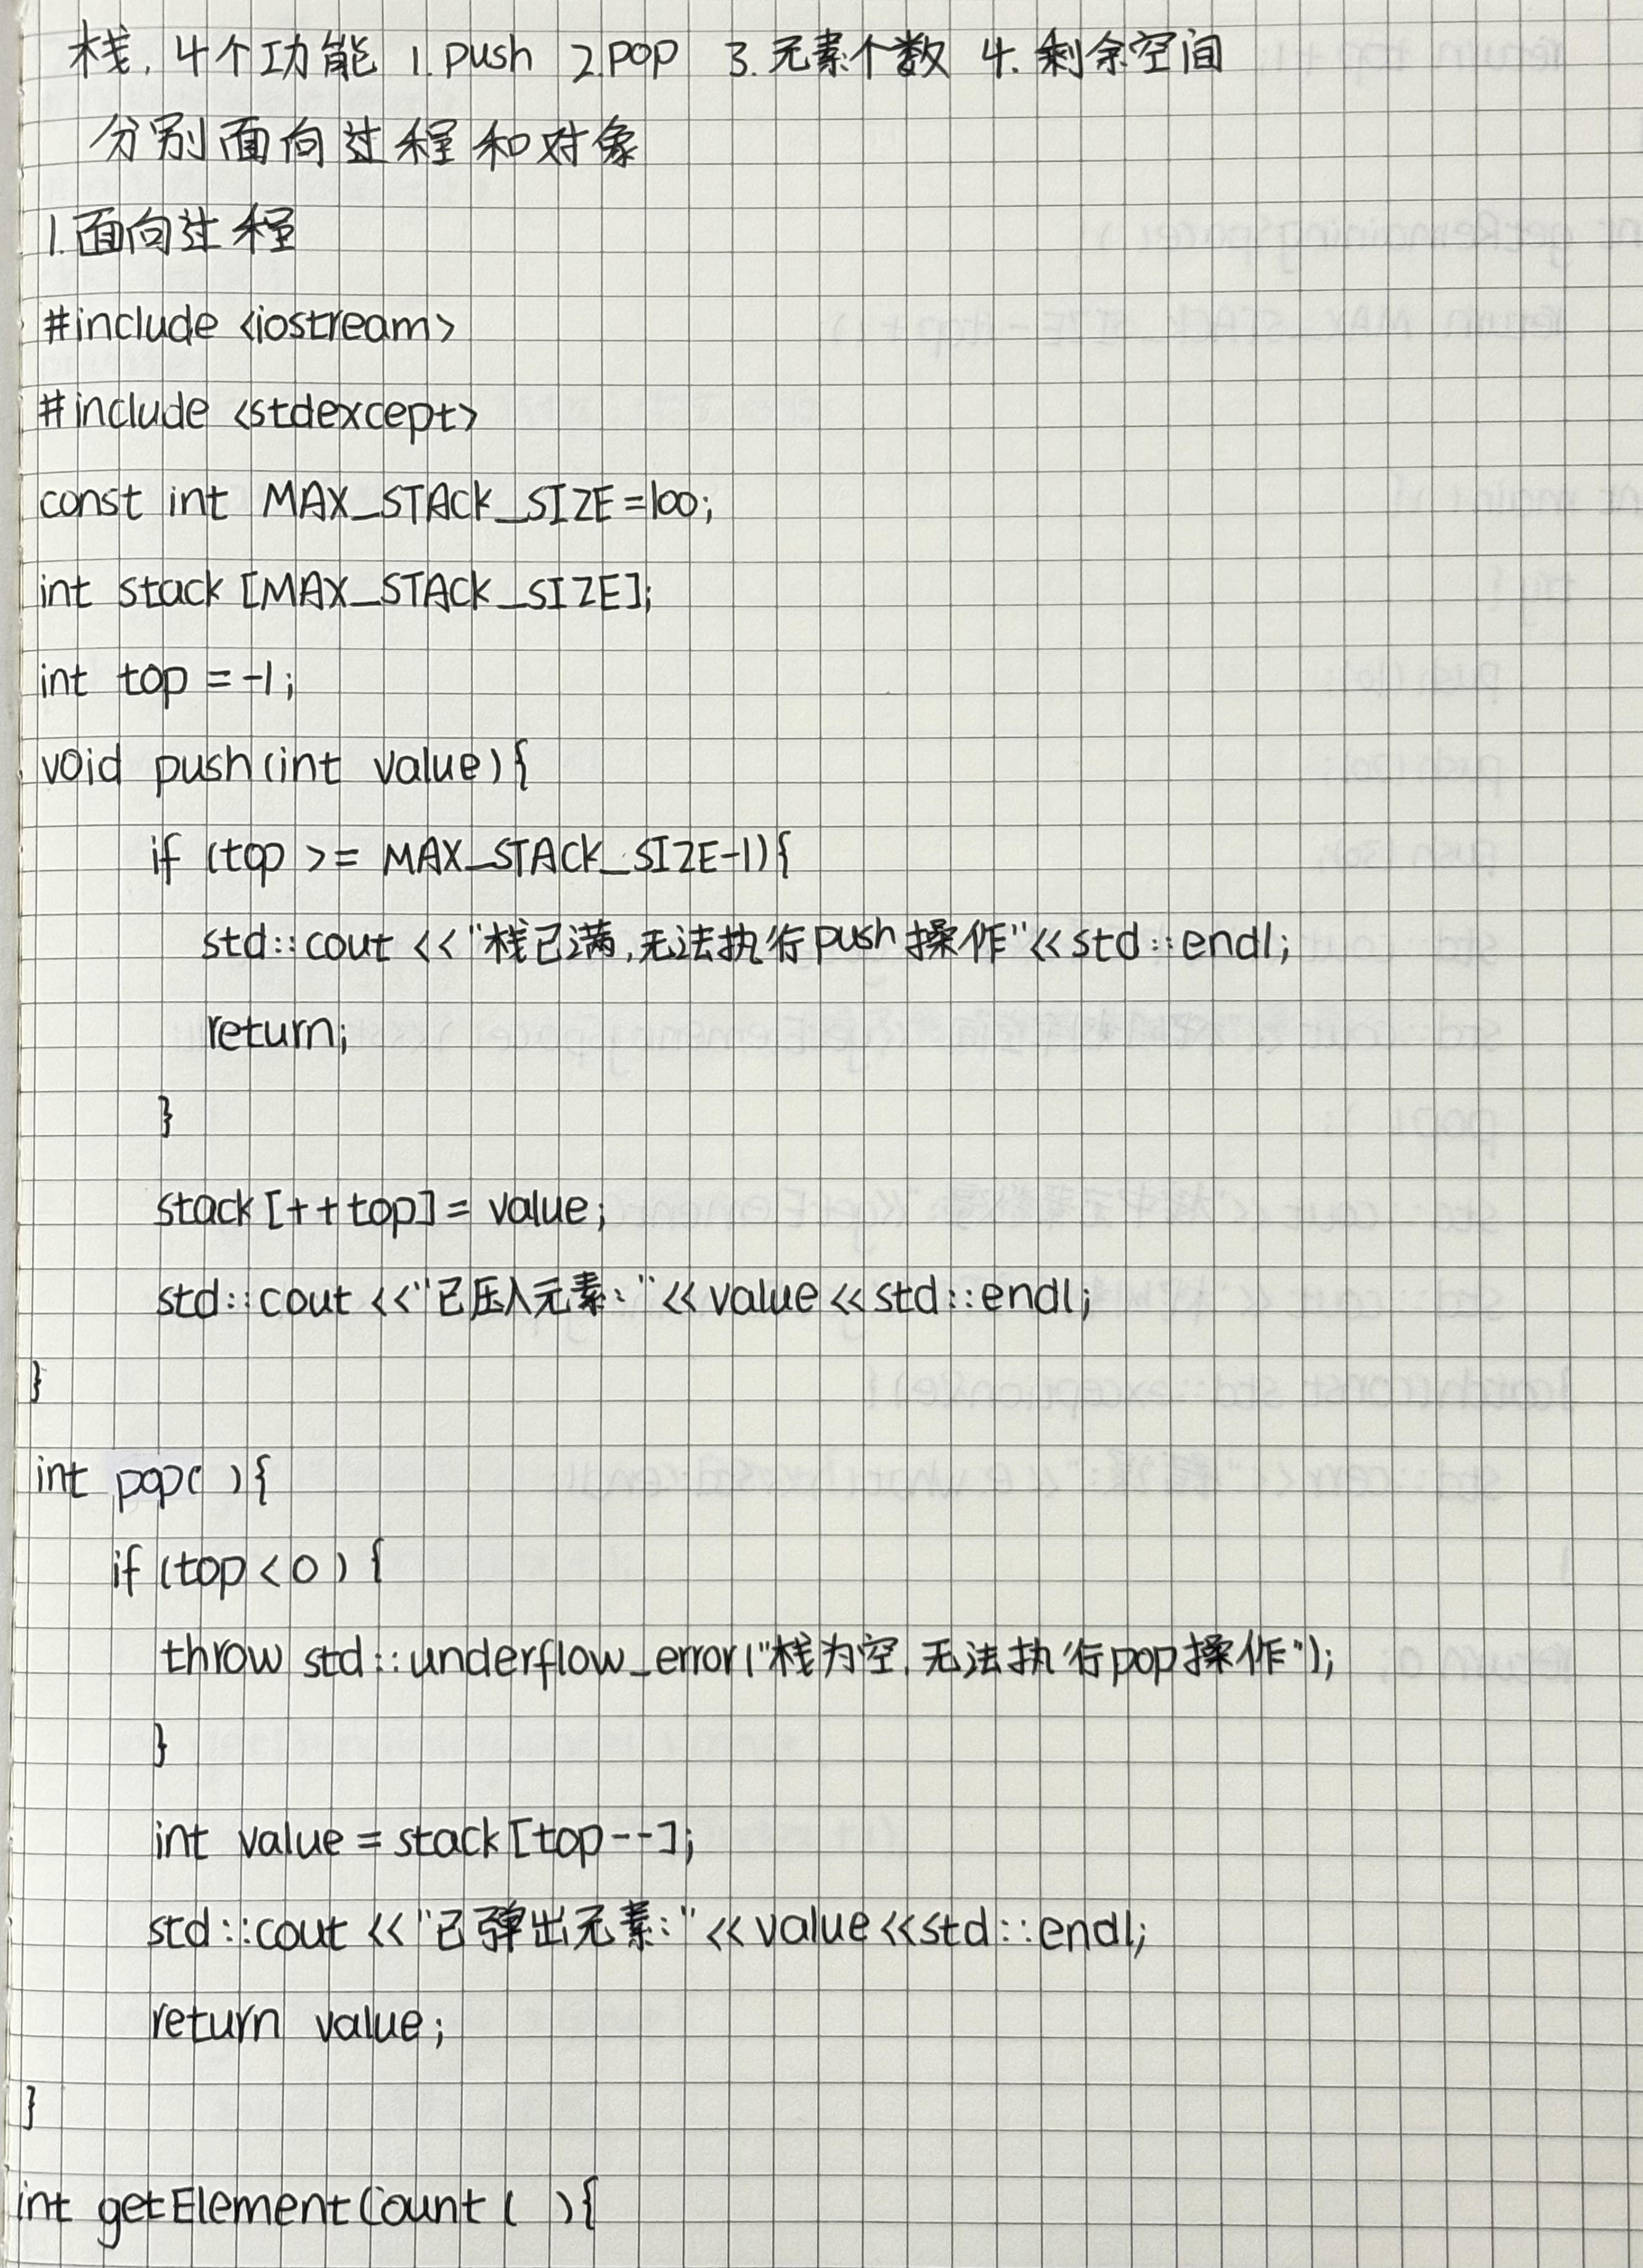 栈. 4个功能 1.push 2.pop 3.元素个数 4.剩余空间
分别面向过程和对象
1.面向过程
#include <iostream>
#include <stdexcept>
const int MAX_STACK_SIZE=100;
int stack [MAX_STACK_SIZE];
int top =-1;
void push(int value){
if (top >= MAX_STACK_SIZE-1){
std::cout <<"栈已满,无法执行push操作"<<std::endl;
return;
}
stack[++top]= value;
std::cout <<"已压入元素:"<<value<<std::endl;
}
int pop( ){
if (top<0) {
throw std::underflow_error("栈为空,无法执行pop操作");
}
int value=stack[top--];
std::cout <<"已弹出元素:"<<value<<std::endl;
return value;
}
int getElementCount( ){